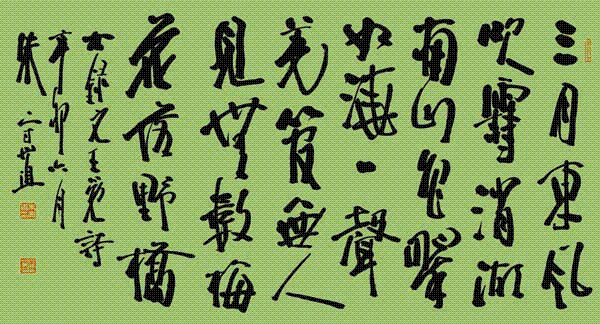 三月東風
吹雪消湖
南山色翠
如澆一聲
羌管無人
見無數梅
花落野橋
右錄元王冕詩
辛卯六月
朱